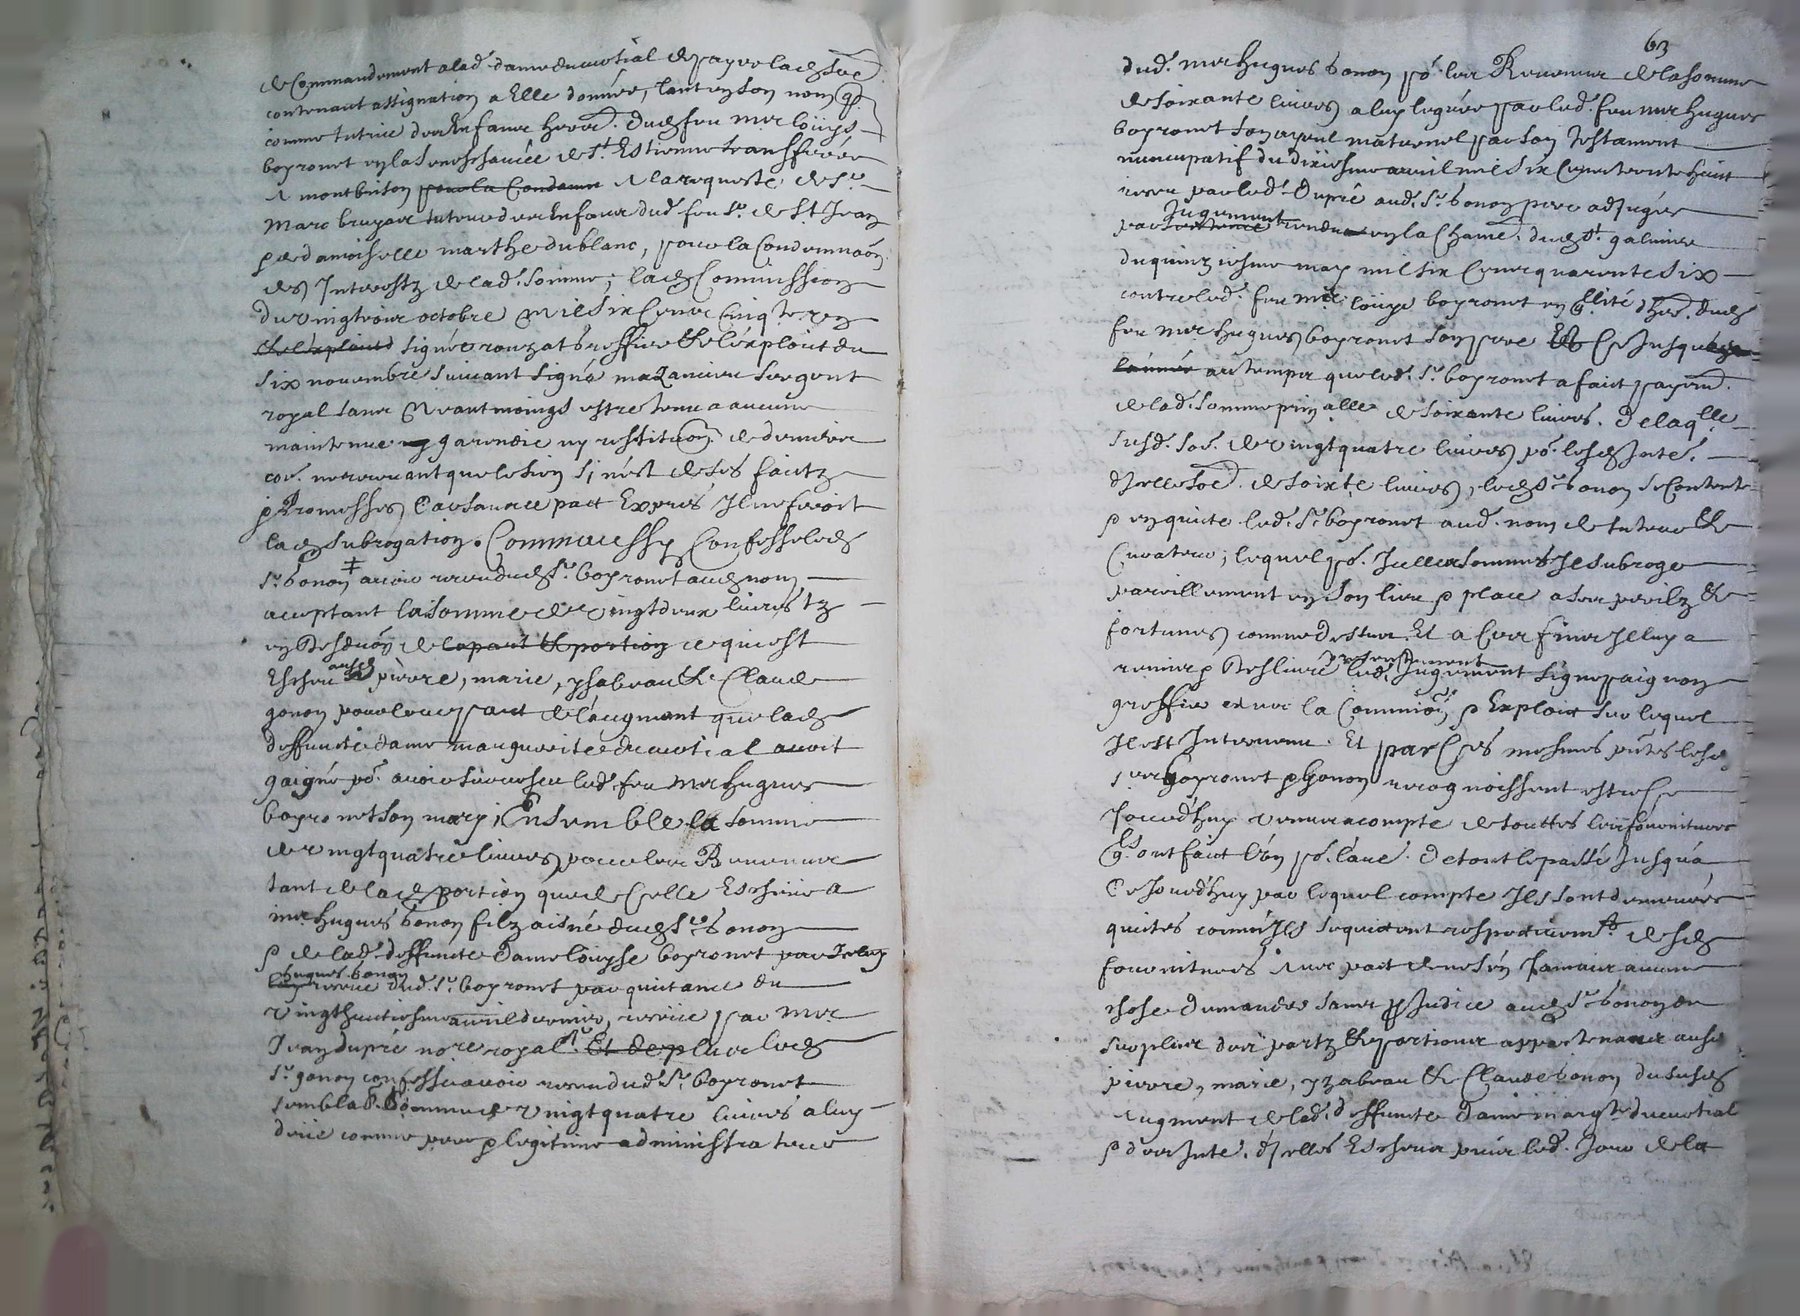 de Commandement a lad. dame du cuotial de payer lad. so͞e
contenant assignation a Elle donnée, tant en son nom q͞
comme tutrice des Enfans hered. dud. feu mre loüys
boyronet en la Seneschaucée de St Estienne transfferée
A montbrison pour la Condamn A la requeste de Sr
Marc bruyas tuteur des Enfans dud. feu Sr de St Jean
& damoiselle marthe dublanc, pour la Condemnaon
des Interestz de lad. somme; lad. Commission
du vingtiour octobre mil six Cens Cinqte
& lexploit signée ronzat Greffier & l'exploit du
six novembre suivant signé mazancieu sergent
royal sans Neantmoings estre tenu a aucune
maintenue garendie ny restituon de deniers
ne recevant que le sien si n'est de ses faictz
& Promesses Car sans ce pact Expres Il ne feroit
lad. subrogation. Comme aussy Confesse led.
Sr bonon avoir receu dud. Sr boyronet aud. nom
acceptant la somme de vingtdeux livres tz
en Desduon de la part & portion ce qui est
Escheu ausd. pierre, marie, ysabeau & Claude
gonon pour leur part de l'augment que lad.
deffuncte dame marguerite du cuotial avoit
gaigné po. avoir survescu led. feu mre hugues
boyronet son mary; Ensemble la somme
de vingtquatre livres pour les Revenus
tant de lad. portion que de Celle Escheue a
mre hugues bonon filz aisné dud. Sr bonon
& de lad. deffuncte Dame loüyse boyronet par Iceluy
hugues bonon
receue dud. Sr boyronet par quictance du
vingthuictiesme avril dernier, receue par Mre
Jean dupré nore royal. Et de plus led.
Sr gonon confesse avoir receu dud. Sr boyronet
semblab. somme de vingtquatre livres a luy
deüe comme pere & legitime administrateur
63
dud. mre hugues bonon po. les Revenus de la somme
de soixante livres a luy leguée par led. feu mre hugues
boyronet son ayeul maternel par son Testament
nuncupatif du dixiesme avril mil six Cens trente huict
receu par led. Dupré aud. Sr bonon pere adjugée
Jugement
par sentence rendu en la Chame. dud. St galmier
du quinziesme may mil six Cens quarente six
contre led. feu mre loüys boyronet en q͞llité d'her. dud.
feu mre hugues boyronet son pere & Ce Jusqu
l'année au temps que led. Sr boyronet a faict payem.
de lad. somme prin͞alle de soixante livres. De laqlle
susd. so͞e de vingtquatre livres po. lesd. Inte.
d'Icelle so͞e de soixte livres, led. Sr bonon se Contente
& en quicte led. Sr boyronet aud. nom de tuteur &
Curateur; lequel po. Icelles sommes Il subroge
pareillement en son lieu & place a ses perilz &
fortunes comme dessus. Et a Ces fins Il luy a
presentement
remis & Deslivré led. Jugement signé paignon
greffier avec la Commion & Exploit sur lequel
Il est Intervenu. Et par Ces mesmes p͞ntes lesd.
srs boyronet & Gonon recognoissent estre Ce
Jourd'huy venus a compte de touttes les fournitures
q͞ls ont faict l'un po. l'aue. de tout le passé Jusqu'a
Ce Jourd'huy par lequel compte Ils sont demeurés
quites comme Ils se quictent respectivemt. desd.
fournitures Avec pact de ne s'en Jamais aucune
chose demander sans preJudice aud. Sr bonon du
surplus des partz & portions appartenans ausd.
pierre, marie, yzabeau & Claude bonon du susd.
Augment de lad. deffuncte Dame margte du cuotial
& des Inte. d'Icelles Escheus puis led. Jour de la